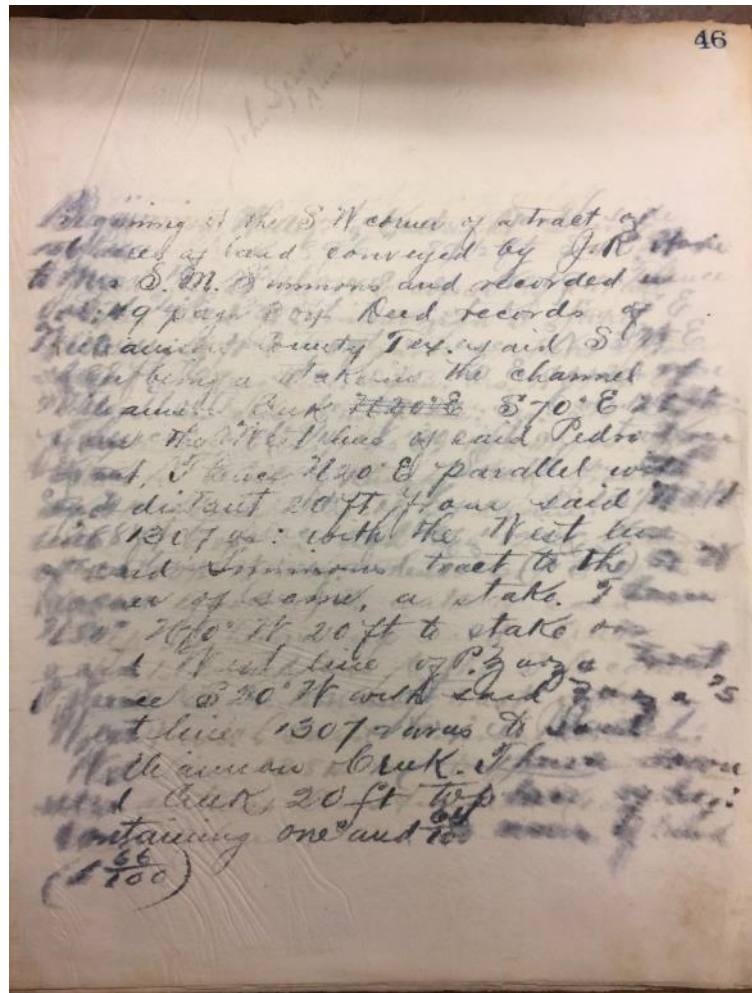 46
John
Beginning at the S W corner of a tract of
acres of land conveyed by J. R.
to Mrs S. M. Simmons and recorded in
Vol: 49 page Deed records of
County Tex. said S W
being a stake in the channel of
Creek N20°E S70°E
the West line of said Pedro
Thence N20°E parallel with
and distant 20 ft from said West
line 1307 vs: with the West line
of said Simmons tract to the N W
corner of same, a stake. Thence
N70°W 20 ft to stake on
said West line of P. Zarza tract
Thence S20°W with said Zarza's
West line 1307 varas to said
Williamson Creek. Thence down
said Creek 20 ft to place of beg:
containing one and 66/100 acres of land
(1 66/100)